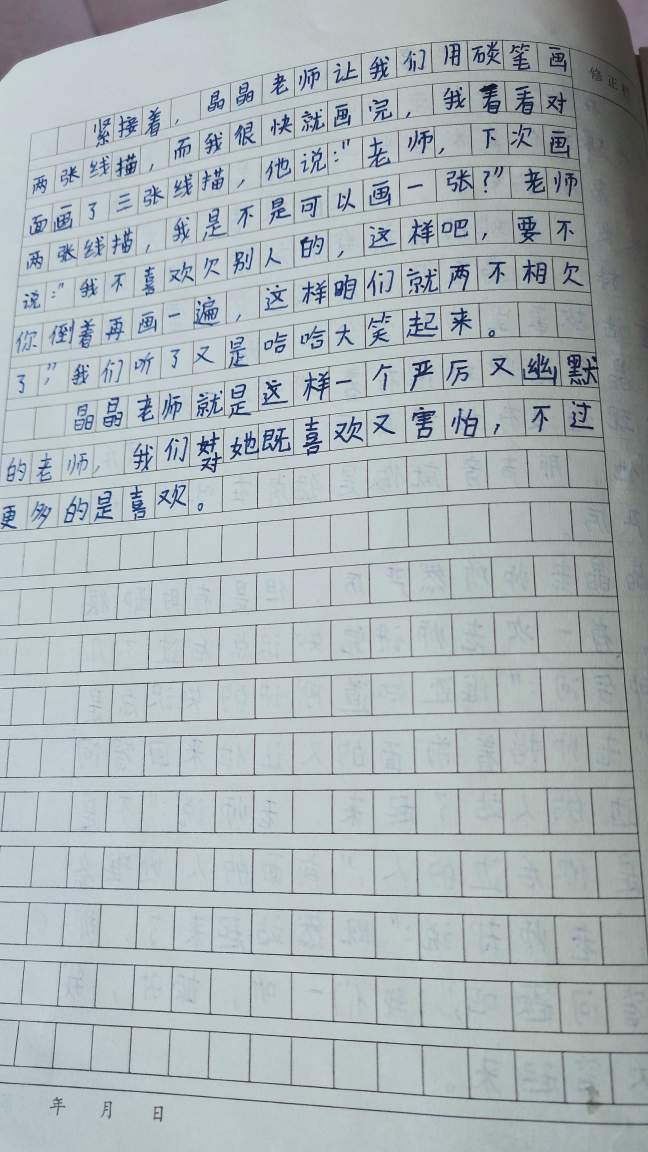 紧接着，晶晶老师让我们用碳笔画
两张线描，而我很快就画完，我看看对
面画了三张线描，他说：“老师，下次画
两张线描，我是不是可以画一张？”老师
说：“我不喜欢欠别人的，这样吧，要不
你倒着再画一遍，这样咱们就两不相欠
了”，我们听了又是哈哈大笑起来。
晶晶老师就是这样一个严厉又幽默
的老师，我们对她既喜欢又害怕，不过
更多的是喜欢。
年 月 日